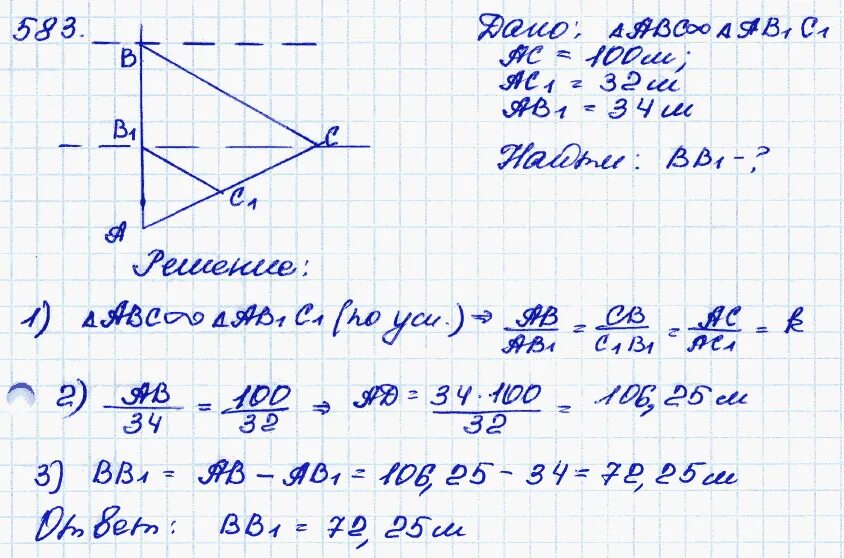 583.
Дано: △ABC∞△AB₁C₁
AC = 100м;
AC₁ = 32м
AB₁ = 34м
Найти: BB₁-?
B
B₁
C
C₁
A
Решение:
1) △ABC∞△AB₁C₁ (по усл.) ⇒ AB/AB₁ = CB/C₁B₁ = AC/AC₁ = k
2) AB/34 = 100/32 ⇒ AD = 34·100/32 = 106,25м
3) BB₁ = AB - AB₁ = 106,25 - 34 = 72,25м
Ответ: BB₁ = 72,25м